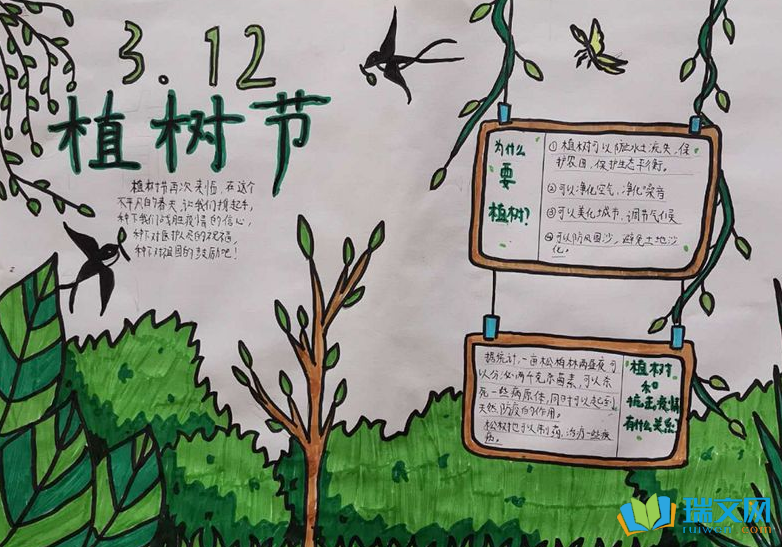 3.12
植树节
植树节再次来临，在这个
不平凡的春天，让我们携起手，
种下我们战胜疫情的信心，
种下对医护人员的祝福，
种下对祖国的鼓励吧！
为什么
要
植树？
①植树可以防止水土流失，保
护农田，保护生态平衡。
②可以净化空气，净化噪音
③可以美化城市，调节气候
④可以防风固沙，避免土地沙
化。
据统计，一亩松柏林两昼夜可
以分泌两千克杀菌素，可以杀
死一些病原体，同时可以起到
天然防疫的作用。
松树也可以制药，治疗一些疾
病。
植树
和
抗击疫情
有什么关系
瑞文网
ruiwen.com